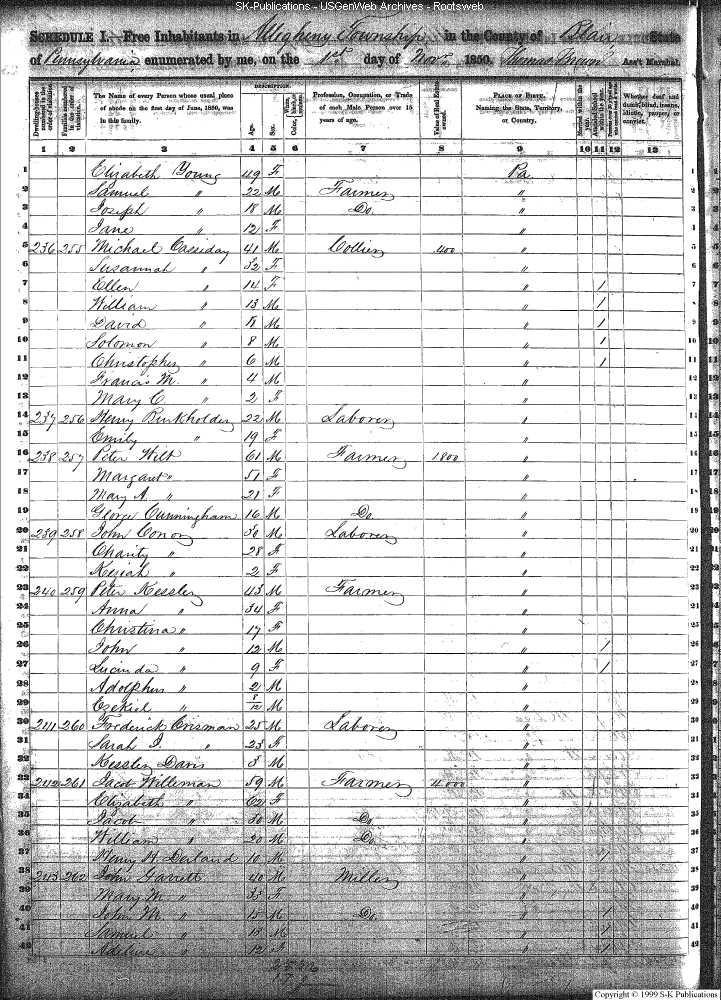 SK-Publications - USGenWeb Archives - Rootsweb
SCHEDULE I.—Free Inhabitants in Allegheny Township in the County of Blair State
of Pennsylvania enumerated by me, on the 1st day of Novr 1850. Thomas Ass't Marshal.
DESCRIPTION.
Dwelling-houses numbered in the order of visitation.
Families numbered in the order of visitation.
The Name of every Person whose usual place of abode on the first day of June, 1850, was in this family.
Age.
Sex.
Color,
Profession, Occupation, or Trade of each Male Person over 15 years of age.
Value of Real Estate owned.
PLACE OF BIRTH. Naming the State, Territory, or Country.
Married within the year.
Whether deaf and dumb, blind, insane, idiotic, pauper, or convict.
1 2 3 4 5 6 7 8 9 10 11 12 13
1 Elizabeth Young 49 F Pa. 1
2 Samuel " 22 M Farmer " 2
3 Joseph " 18 M Do. " 3
4 Jane " 12 F " 4
5 236 255 Michael Cassiday 41 M Collier 400 " 5
6 Susannah " 32 F " 6
7 Ellen " 14 F " 1 7
8 William " 13 M " 1 8
9 David " M " 1 9
10 Solomon " 8 M " 1 10
11 Christopher " 6 M " 1 11
12 Francis M. " 4 M " 12
13 Mary C. " 2 F " 13
14 237 256 Henry Burkholder 22 M Laborer " 14
15 Emily " 19 F " 15
16 238 257 Peter Wilt 61 M Farmer 1800 " 16
17 Margaret " 51 F " 17
18 Mary A. " 21 F " 18
19 George Cunningham 16 M Do. " 19
20 239 258 John Conor 30 M Laborer " 20
21 Charity " 28 F " 21
22 Keziah " 2 F " 22
23 240 259 Peter Kessler 43 M Farmer " 23
24 Anna " 34 F " 24
25 Christina " 17 F " 25
26 John " 12 M " 1 26
27 Lucinda " 9 F " 1 27
28 Adolphus " 2 M " 28
29 Ezekiel " 8/12 M " 29
30 241 260 Frederick Crisman 25 M Laborer " 30
31 Sarah J. " 23 F " 31
32 Kessler Davis 3 M " 32
33 242 261 Jacob Willeman 59 M Farmer 4000 " 33
34 Elizabeth " 62 F " 34
35 Jacob " 30 M Do. " 35
36 William " 20 M Do. " 36
37 Henry H. 10 M " 1 37
38 243 262 John Garrett 40 M Miller " 38
39 Mary M. " 33 F " 39
40 John M. " 15 M Do. " 1 40
41 Samuel " 13 M " 1 41
42 Adeline " 12 F " 1 42
Copyright © 1999 S-K Publications